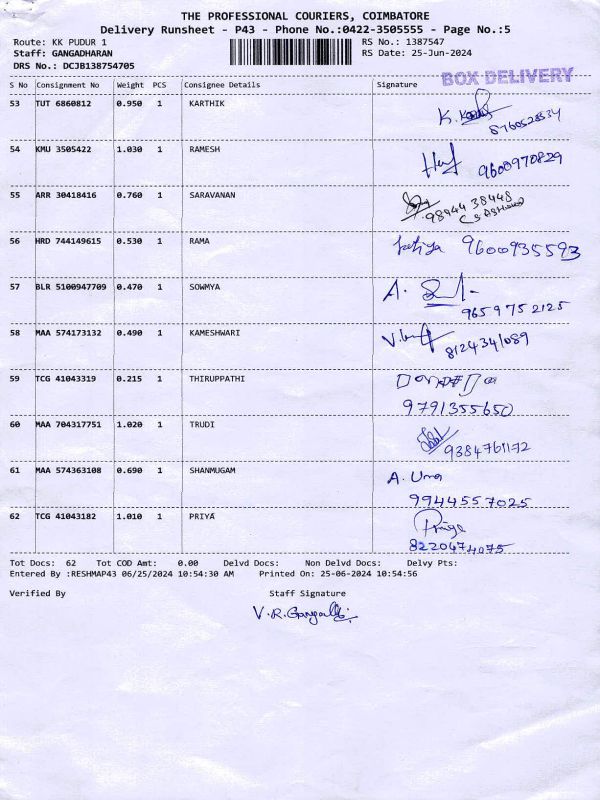 THE PROFESSIONAL COURIERS, COIMBATORE
Delivery Runsheet - P43 - Phone No.:0422-3505555 - Page No.:5
Route: KK PUDUR 1 RS No.: 1387547
Staff: GANGADHARAN RS Date: 25-Jun-2024
DRS No.: DCJB138754705
BOX DELIVERY
S No Consignment No Weight PCS Consignee Details Signature
53 TUT 6860812 0.950 1 KARTHIK K.
54 KMU 3505422 1.030 1 RAMESH 9600970829
55 ARR 30418416 0.760 1 SARAVANAN
98944 38448
56 HRD 744149615 0.530 1 RAMA 9600935593
57 BLR 5100947709 0.470 1 SOWMYA A.
9659752125
58 MAA 574173132 0.490 1 KAMESHWARI
8124341089
59 TCG 41043319 0.215 1 THIRUPPATHI
9791355650
60 MAA 704317751 1.020 1 TRUDI
9384761172
61 MAA 574363108 0.690 1 SHANMUGAM A. Uma
9944557025
62 TCG 41043182 1.010 1 PRIYA Priya
8220474075
Tot Docs: 62 Tot COD Amt: 0.00 Delvd Docs: Non Delvd Docs: Delvy Pts:
Entered By :RESHMAP43 06/25/2024 10:54:30 AM Printed On: 25-06-2024 10:54:56
Verified By Staff Signature
V.R.